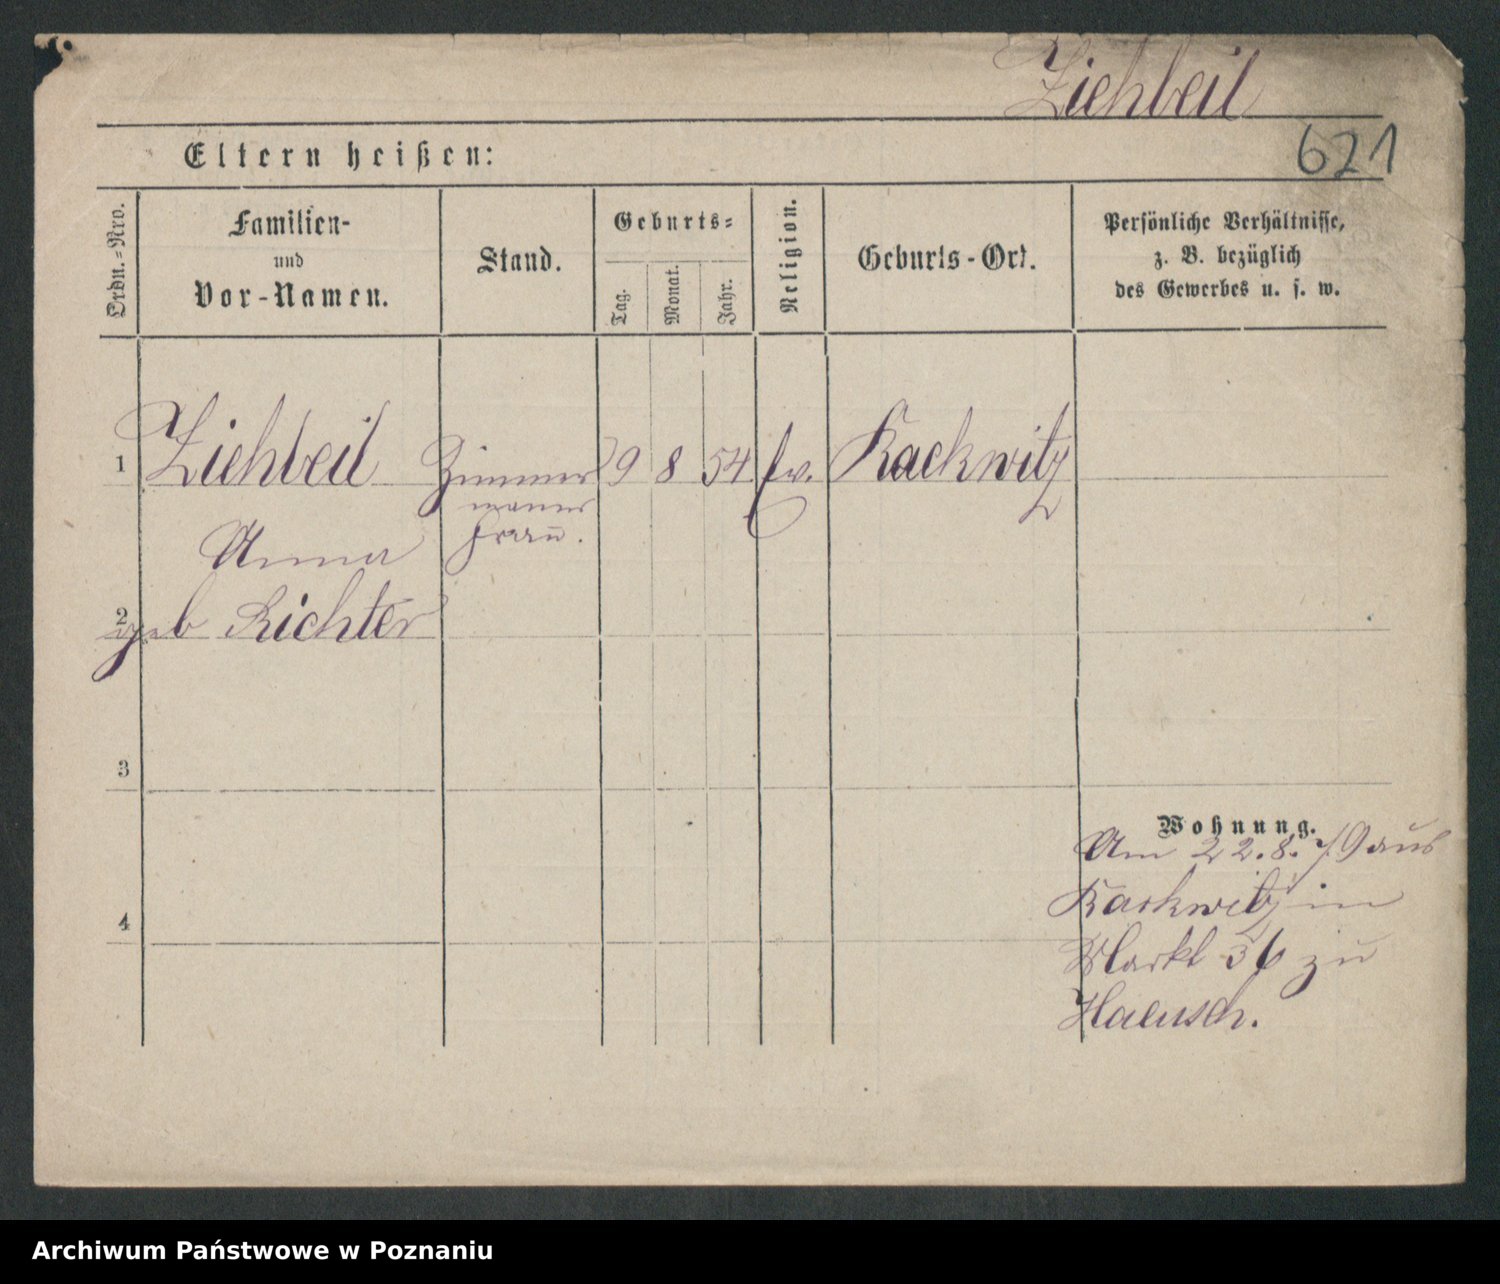 Ziehbeil
621
Eltern heißen:
Ordn.-Nro.
Familien-
und
Vor-Namen.
Stand.
Geburts-
Tag.
Monat.
Jahr.
Religion.
Geburts-Ort.
Persönliche Verhältnisse,
z. B. bezüglich
des Gewerbes u. s. w.
1 Ziehbeil Zimmer 29 8 54 ev. Rackwitz
manns
frau.
Anna
2
geb Richter
3
Wohnung.
Am 22.8.79 aus
Rackwitz in
4
Markt 36 zu
Haensch.
Archiwum Państwowe w Poznaniu